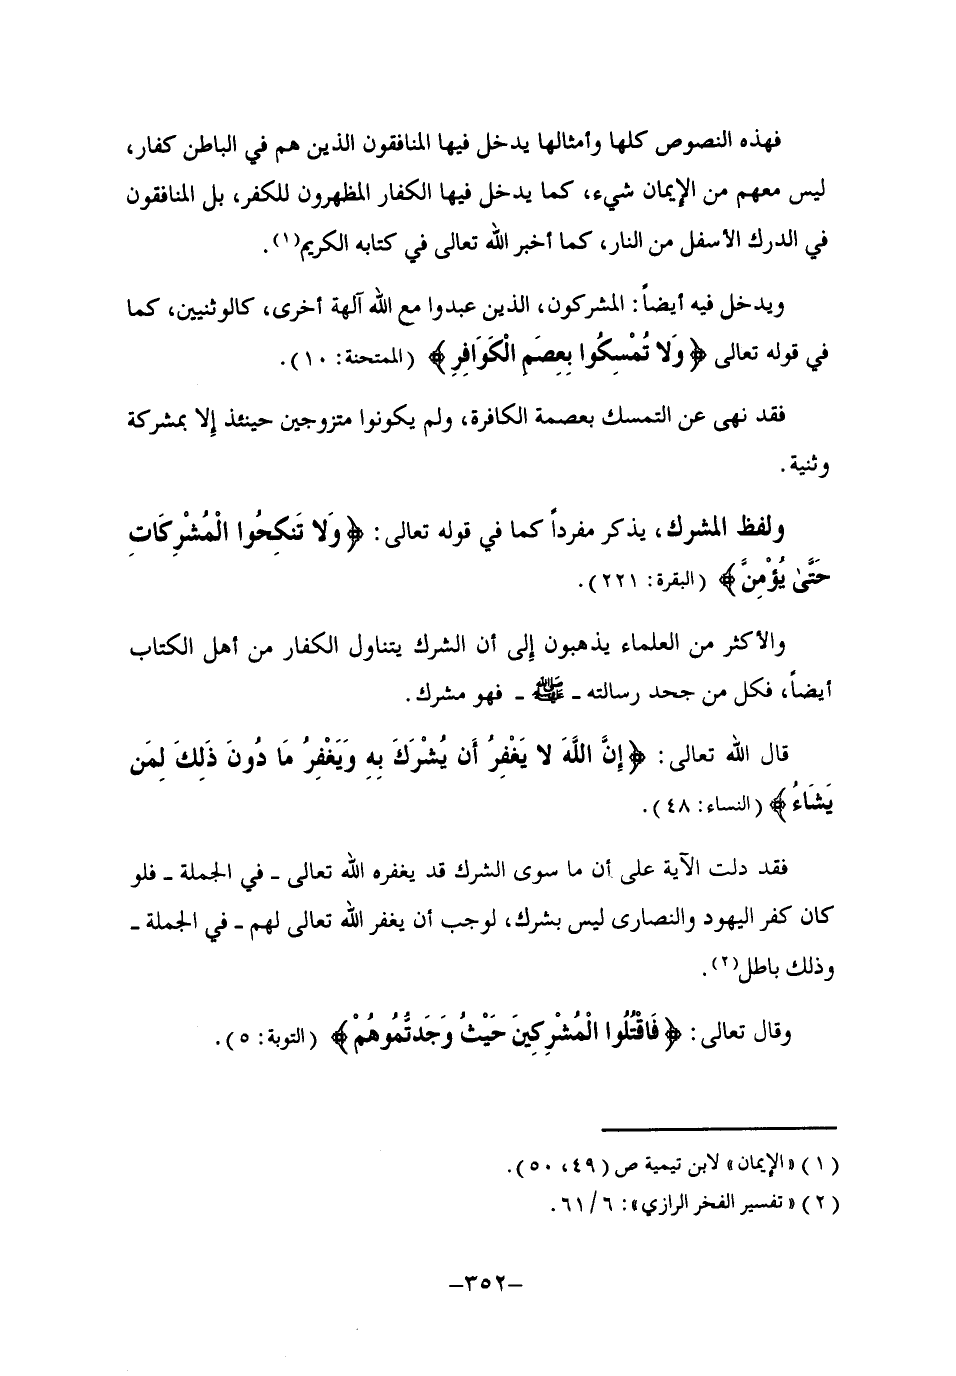 فهذه النصوص كلها وأمثالها يدخل فيها المنافقون الذين هم في الباطن كفار،
ليس معهم من الإيمان شيء، كما يدخل فيها الكفار المظهرون للكفر، بل المنافقون
في الدرك الأسفل من النار، كما أخبر الله تعالى في كتابه الكريم(١).
ويدخل فيه أيضاً: المشركون، الذين عبدوا مع الله آلهة أخرى، كالوثنيين، كما
في قوله تعالى ﴿وَلا تُمْسِكُوا بِعِصَمِ الْكَوَافِرِ﴾ (الممتحنة: ١٠).
فقد نهى عن التمسك بعصمة الكافرة، ولم يكونوا متزوجين حينئذ إلا بمشركة
وثنية.
ولفظ المشرك، يذكر مفرداً كما في قوله تعالى: ﴿وَلا تَنكِحُوا الْمُشْرِكَاتِ
حَتَّىٰ يُؤْمِنَّ﴾ (البقرة: ٢٢١).
والأكثر من العلماء يذهبون إلى أن الشرك يتناول الكفار من أهل الكتاب
أيضاً، فكل من جحد رسالته ـ ﷺ ـ فهو مشرك.
قال الله تعالى: ﴿إِنَّ اللَّهَ لا يَغْفِرُ أَن يُشْرَكَ بِهِ وَيَغْفِرُ مَا دُونَ ذَلِكَ لِمَن
يَشَاءُ﴾ (النساء: ٤٨).
فقد دلت الآية على أن ما سوى الشرك قد يغفره الله تعالى ـ في الجملة ـ فلو
كان كفر اليهود والنصارى ليس بشرك، لوجب أن يغفر الله تعالى لهم ـ في الجملة ـ
وذلك باطل(٢).
وقال تعالى: ﴿فَاقْتُلُوا الْمُشْرِكِينَ حَيْثُ وَجَدتُّمُوهُمْ﴾ (التوبة: ٥).
(١) «الإيمان» لابن تيمية ص (٤٩، ٥٠).
(٢) «تفسير الفخر الرازي»: ٦/ ٦١.
–٣٥٢–